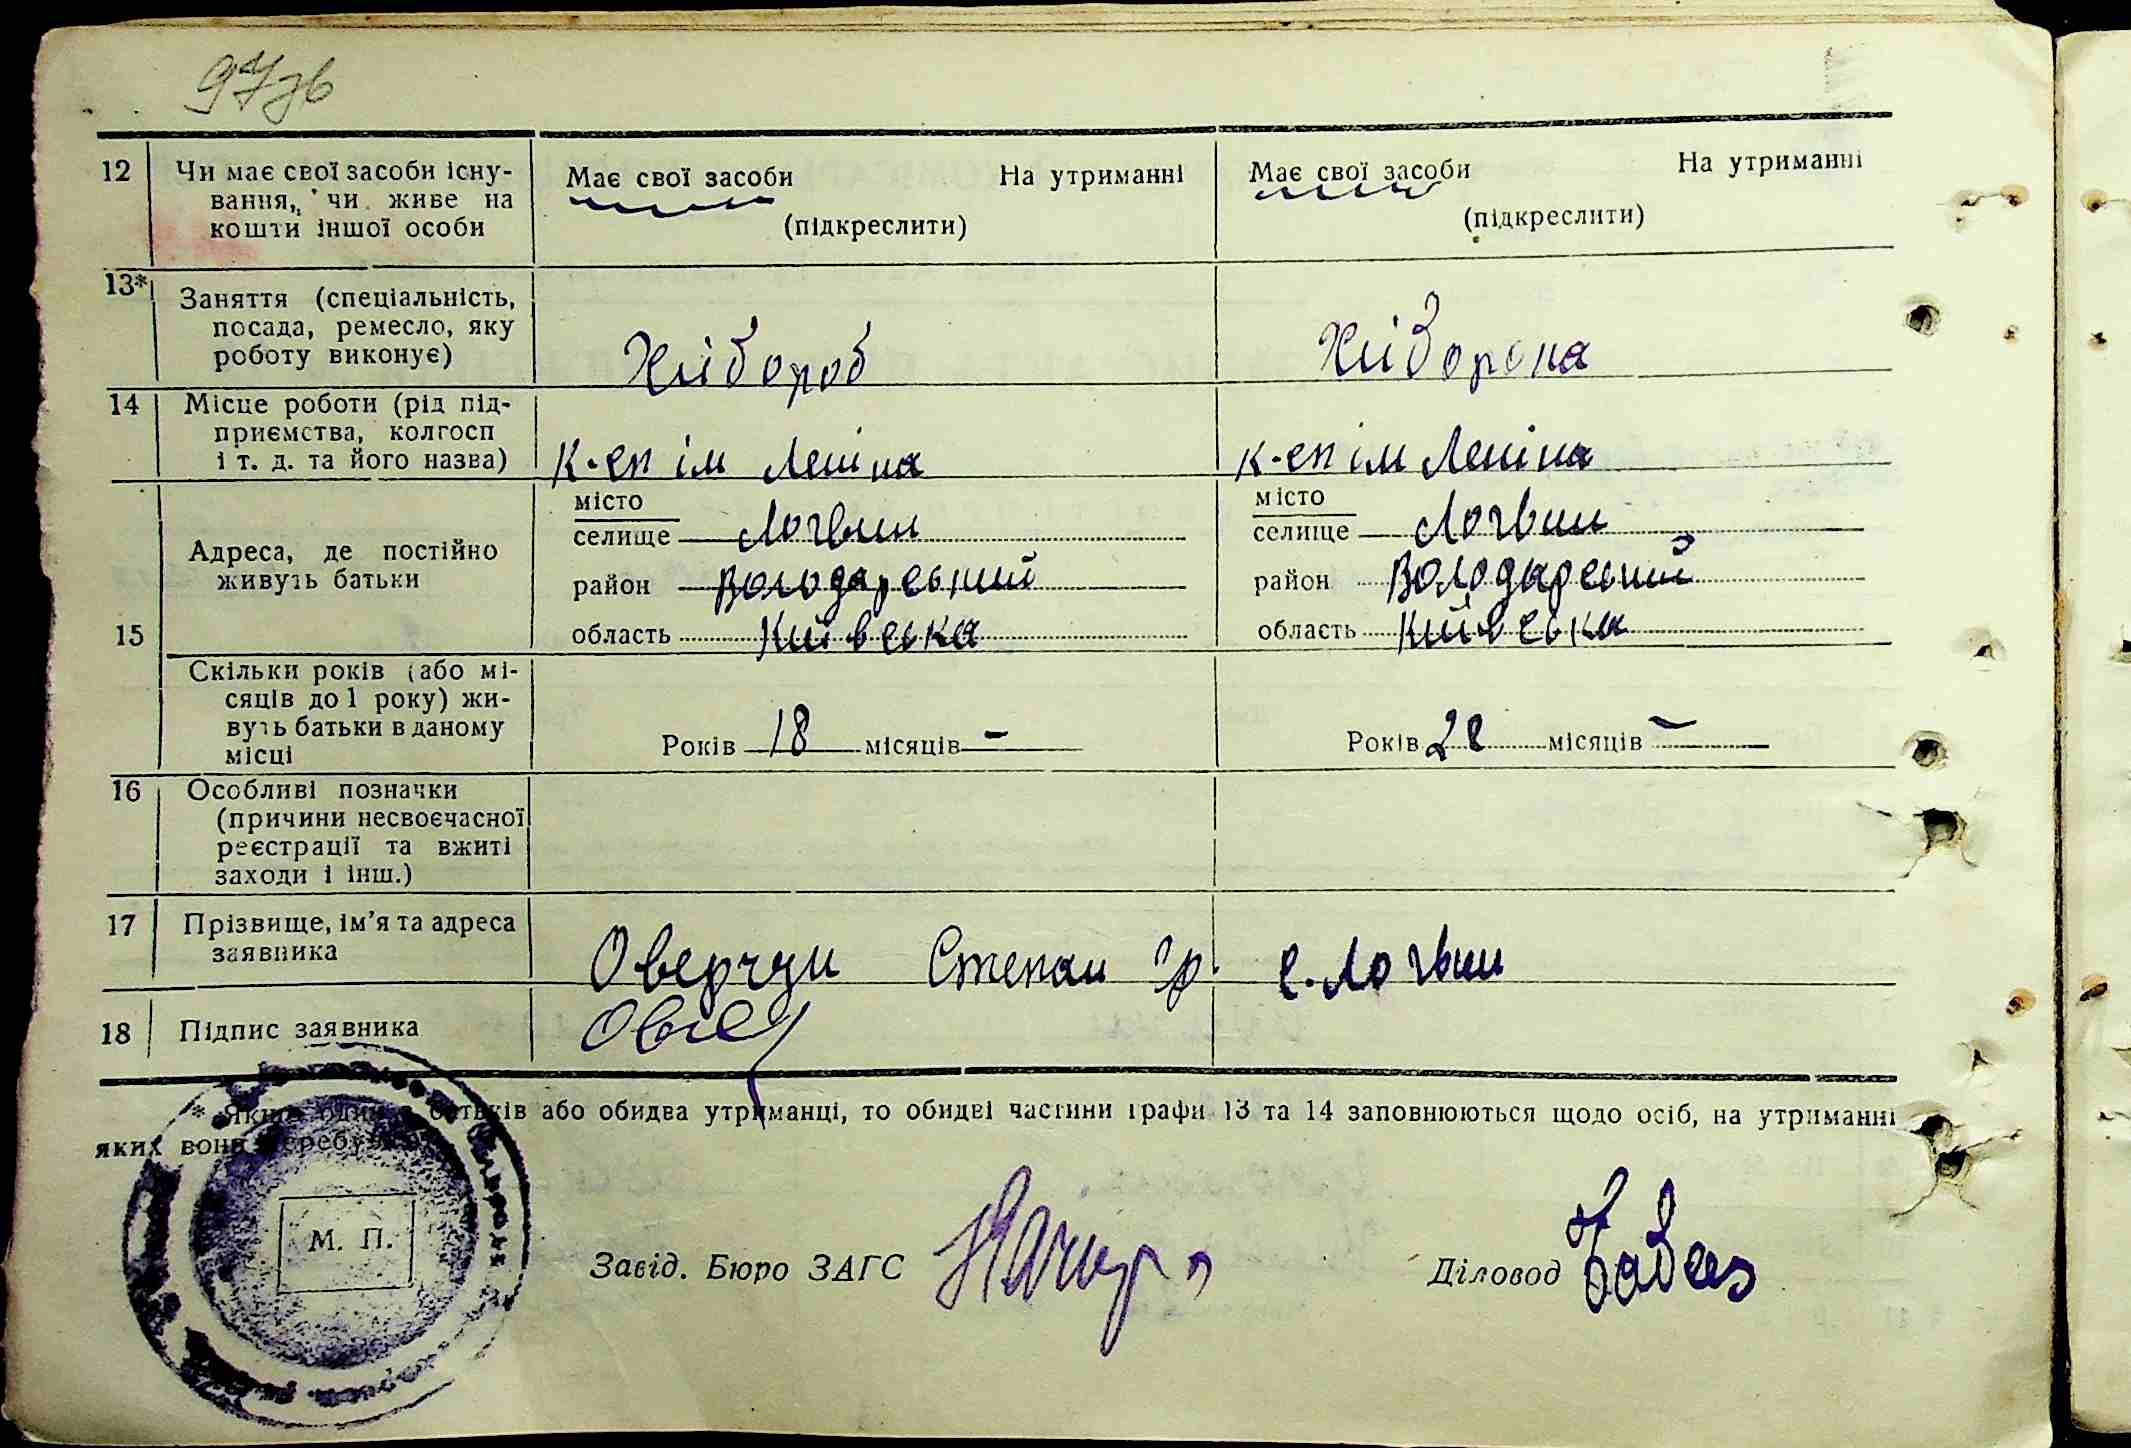 97зв
12 Чи має свої засоби існу-
вання, чи живе на
кошти іншої особи
Має свої засоби На утриманні
(підкреслити)
Має свої засоби На утриманні
(підкреслити)
13* Заняття (спеціальність,
посада, ремесло, яку
роботу виконує)
Хлібороб
Хліборопка
14 Місце роботи (рід під-
приємства, колгосп
і т. д. та його назва)
к-сп ім Леніна
к-сп ім Леніна
15 Адреса, де постійно
живуть батьки
місто
селище Логвин
район Володарський
область Київська
місто
селище Логвин
район Володарський
область Київська
Скільки років (або мі-
сяців до 1 року) жи-
вуть батьки в даному
місці
Років 18 місяців –
Років 28 місяців –
16 Особливі позначки
(причини несвоєчасної
реєстрації та вжиті
заходи і інш.)
17 Прізвище, ім'я та адреса
заявника
Оверчун Степан гр. с. Логвин
18 Підпис заявника
* Якщо один з батьків або обидва утриманці, то обидві частини графи 13 та 14 заповнюються щодо осіб, на утриманні
яких вони перебувають
М. П.
Завід. Бюро ЗАГС
Діловод